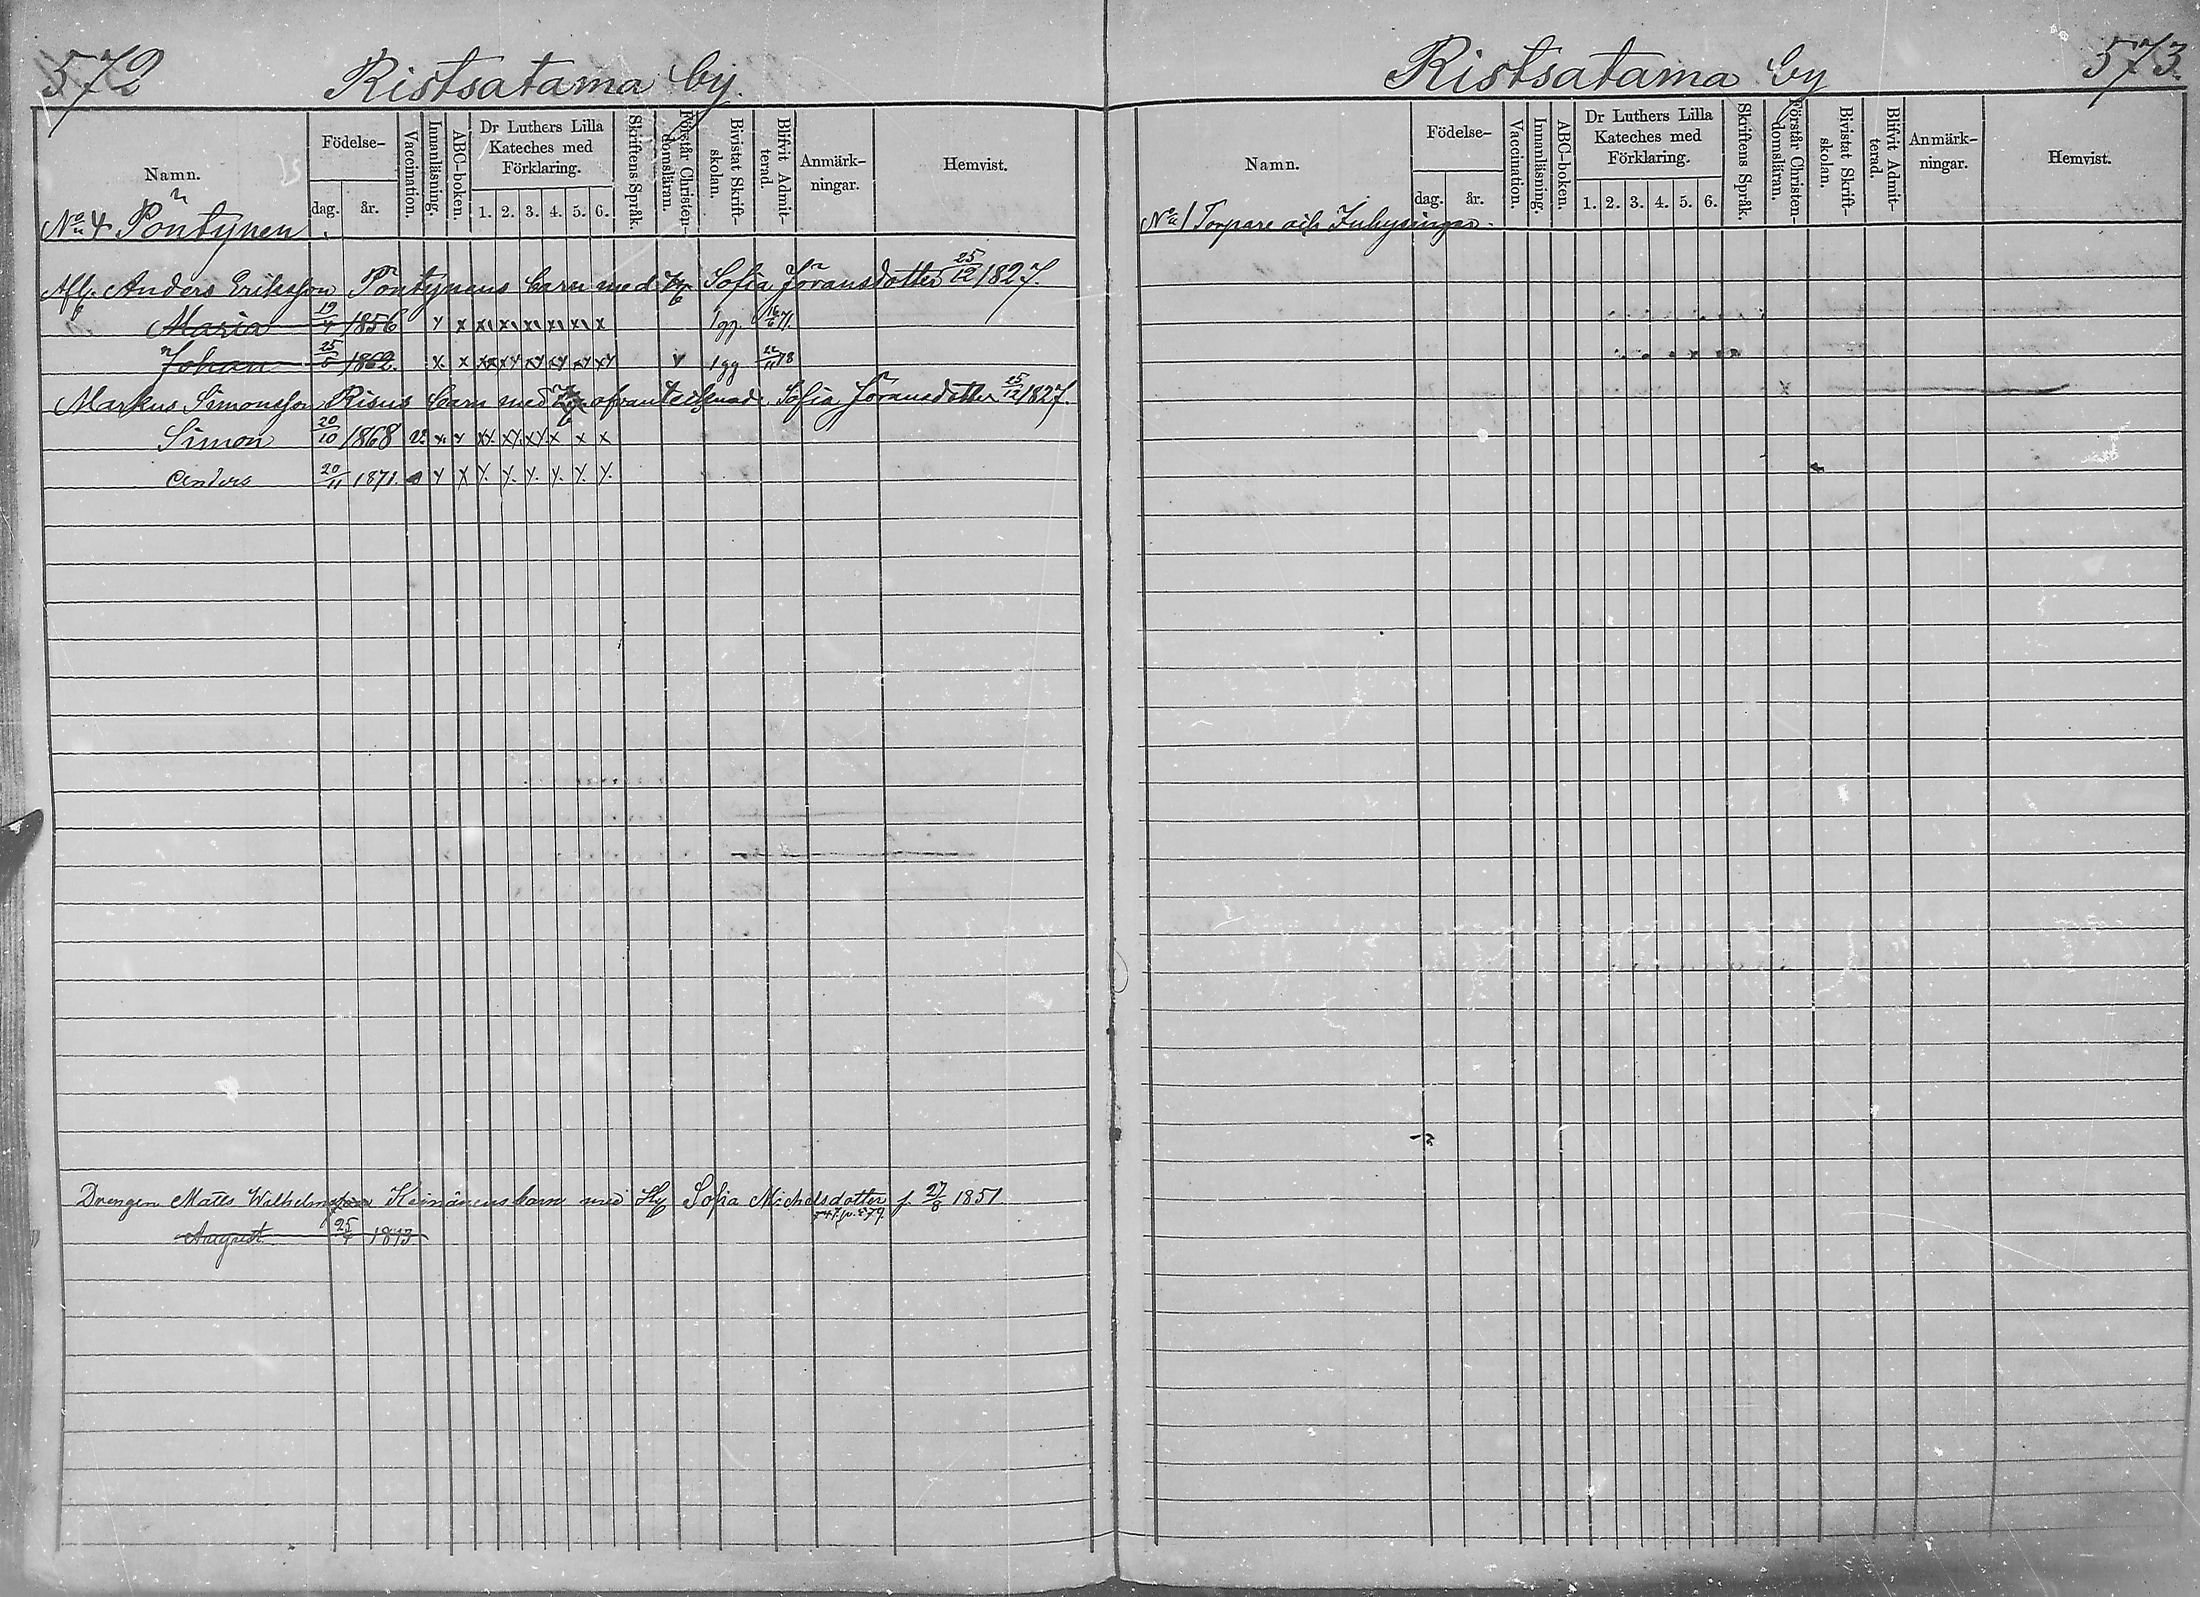 572 Ristsatama by.
Namn. Födelse- dag. år. Vaccination. Innanläsning. ABC-boken. Dr Luthers Lilla Kateches med Förklaring. 1. 2. 3. 4. 5. 6. Skriftens Språk. Förstår Christendomsläran. Bivistat Skriftskolan. Blifvit Admitterad. Anmärkningar. Hemvist.
No 4 Pöntynen
Afl. Anders Eriksson Pöntynens barn med Sofia Jöransdotter 25/12 1827.
Maria 19/4 1856 x x x x x x x x 1 gg. 16/6 71.
Johan 25/5 1862. x. x xx xx xx xx xx xx v 1 gg 22/11 78
Markus Simonsson Risus barn med ofvantecknade Sofia Jöransdotter 25/12 1827.
Simon 20/10 1868 v. x. x xx. xx. xx. x x x
Anders 20/11 1871. x x x. x. x. x. x. x.
Drengen Matts Wilhelmsson Keinänens barn med Hu Sofia Michelsdotter f. 27/8 1851
August 25/4 1873
Ristsatama by 573.
Namn. Födelse- dag. år. Vaccination. Innanläsning. ABC-boken. Dr Luthers Lilla Kateches med Förklaring. 1. 2. 3. 4. 5. 6. Skriftens Språk. Förstår Christendomsläran. Bivistat Skriftskolan. Blifvit Admitterad. Anmärkningar. Hemvist.
No 1 Torpare och Inhysingar.